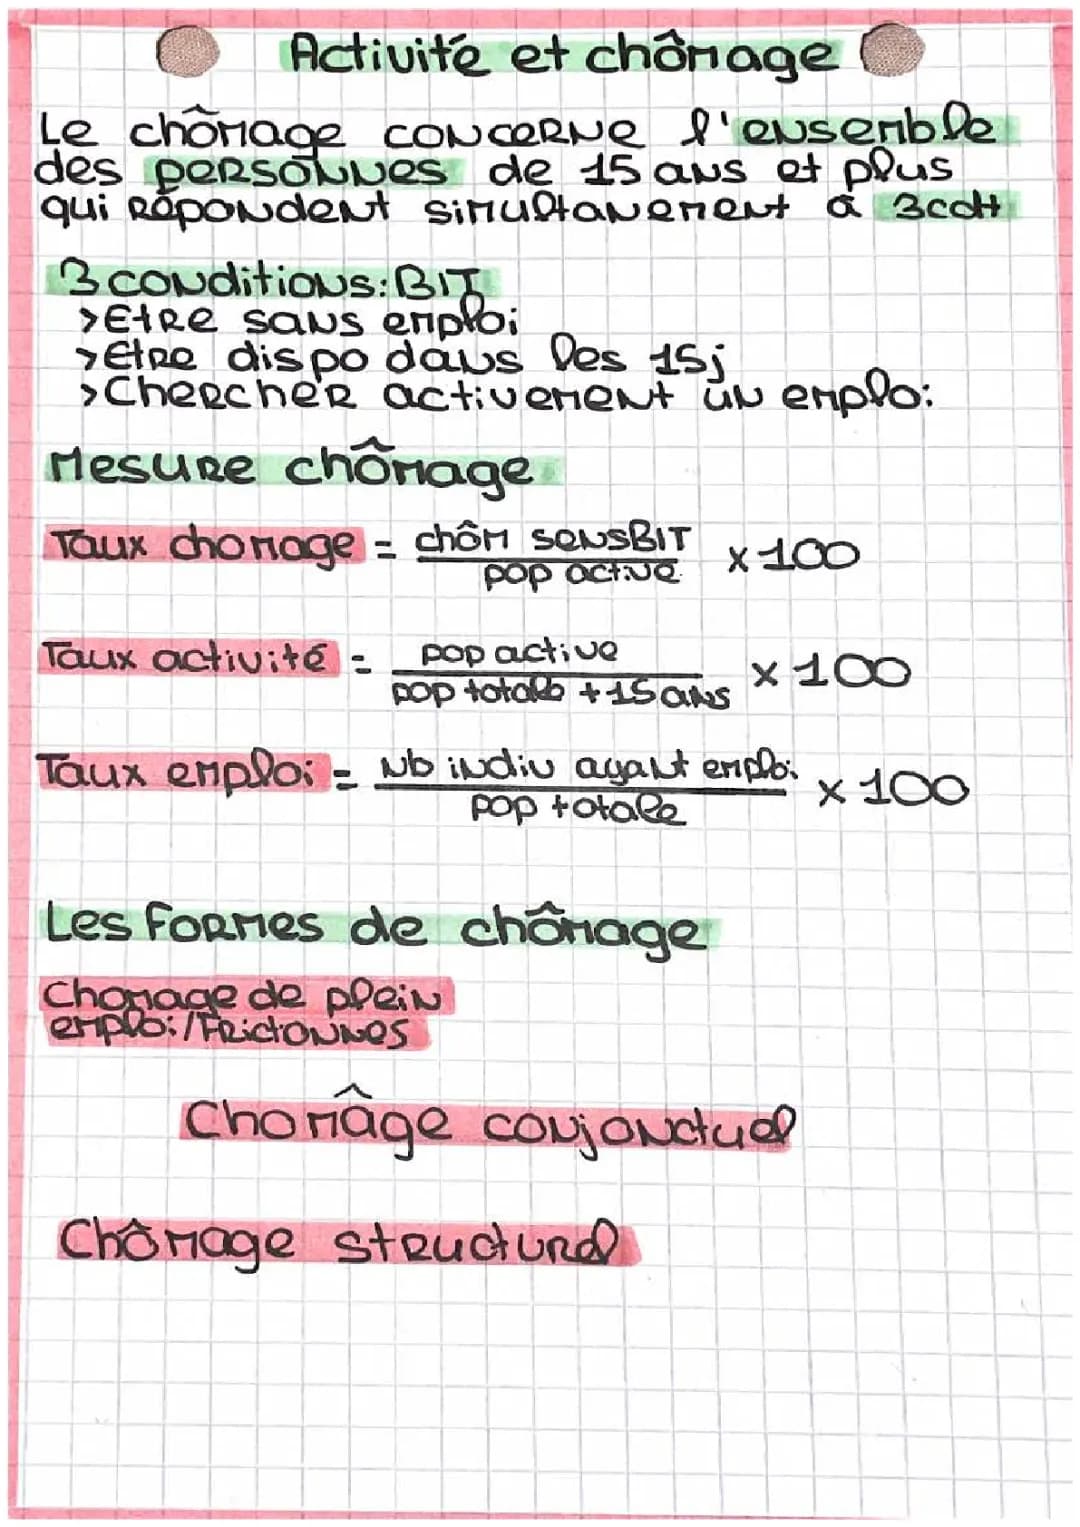 Activité et chômage
Le chômage concerne l'ensemble
des personnes de 15 ans et plus
qui répondent simultanement à 3cdt
3 conditions: BIT
>Etre sans emploi
>Etre dispo dans les 15j
>Chercher activement un emploi
Mesure chômage
Taux chomage = chôm sensBIT / pop active x100
Taux activité = pop active / pop totale +15ans x100
Taux emploi = Nb indiv ayant emploi / pop totale x100
Les formes de chômage
Chomage de plein
emploi/Frictonnes
Chomâge conjonctuel
Chômage structurel